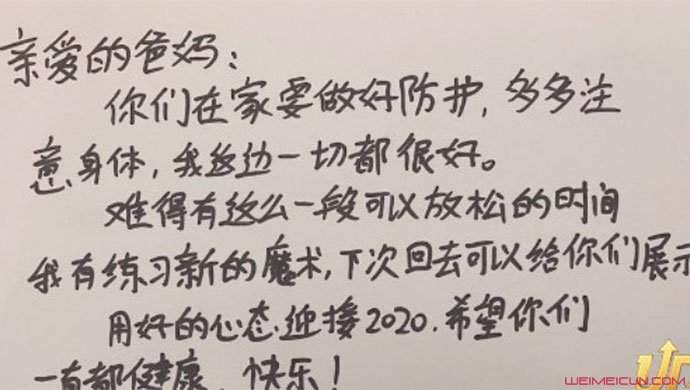 亲爱的爸妈:
你们在家要做好防护,多多注
意身体,我这边一切都很好。
难得有这么一段可以放松的时间
我有练习新的魔术,下次回去可以给你们展示
用好的心态迎接2020.希望你们
一直都健康、快乐!
UP
WEIMEICUN.COM